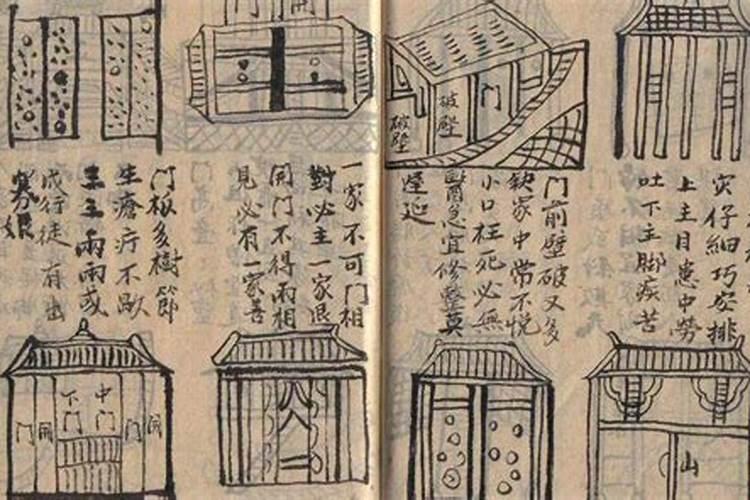 灾仔細巧安排
上主目患中勞
吐下主脚疾苦
破壁
門
破壁
門前壁破又多
缺家中常不悅
小口枉死必無
醫急宜修整莫
遲延
山
門
門
一家不可門相
對必主一家退
開門不得兩相
見必有一家善
門板多樹節
生瘡疔不歇
兩兩或
成行徒有出
中門
下門
門
門